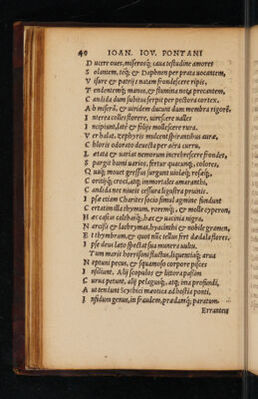 40 IOAN. IOV. PONTANI
Ducere oues, miserosq; caua testudine amores
Solantem, teq; ô Daphnon per prata uocantem,
Visere & patrijs natam frondescere ripis,
Tendentemq; manus, & flumina nota precantem,
Candida dum subitus serpit per pectora cortex.
Ab miserũ, & uiridem ducunt dum membra rigorẽ.
Interea colles florere, uirescere ualles
Incipiunt, latè & filijs mollescere rura.
Ver halat, zephyris mulcent spirantibus auræ,
Chloris odorato deuecta per aëra curru,
Lætata & uarias nemorum increbrescere frondes,
Spargit humi uarios, fertur quacunq;, colores,
Quaq; mouet gressus surgunt uiolæq;, rosæq;,
Coritiq; croci, atq; immortales amaranthi,
Candida nec niueis cessura ligustra pruinis.
Ipsæ etiam Charites socio simul agmine fundunt
Certatim illa thymum, roremq;, & molle cyperon,
Hæc casias calthasq;, hæc & uacinia nigra,
Narcissi & lachrymas, hyacinthi & nobile gramen,
Et thymbram, & quot núc tellus fert dædala flores,
Ipse deus lato spectat sua munera uultu.
Tum maris horrisoni fluctus, liquentiaq; arua
Neptuni pecus, & squamoso corpore pisces
Insiliunt. Alij scopulos & littora passim
Cursus petunt, alij pelagusq;, atq; ima profundi,
Aut tendunt Scythici mæotica ad hostia ponti,
Insidum genus, in fraudem, prædamq; paratum.
Erranteis